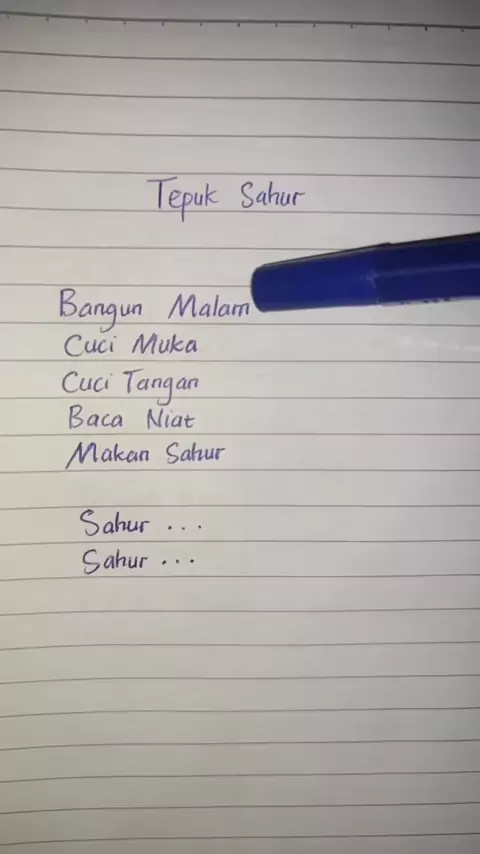 Tepuk Sahur
Bangun Malam
Cuci Muka
Cuci Tangan
Baca Niat
Makan Sahur
Sahur ...
Sahur ...